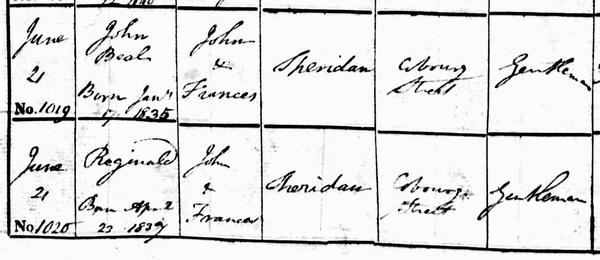 June
21
No. 1019
John
Beal
Born Jany
17 1835
John
&
Frances
Sheridan
Cobourg
Street
Gentleman
June
21
No. 1020
Reginald
Born April
23 1837
John
&
Frances
Sheridan
Cobourg
Street
Gentleman